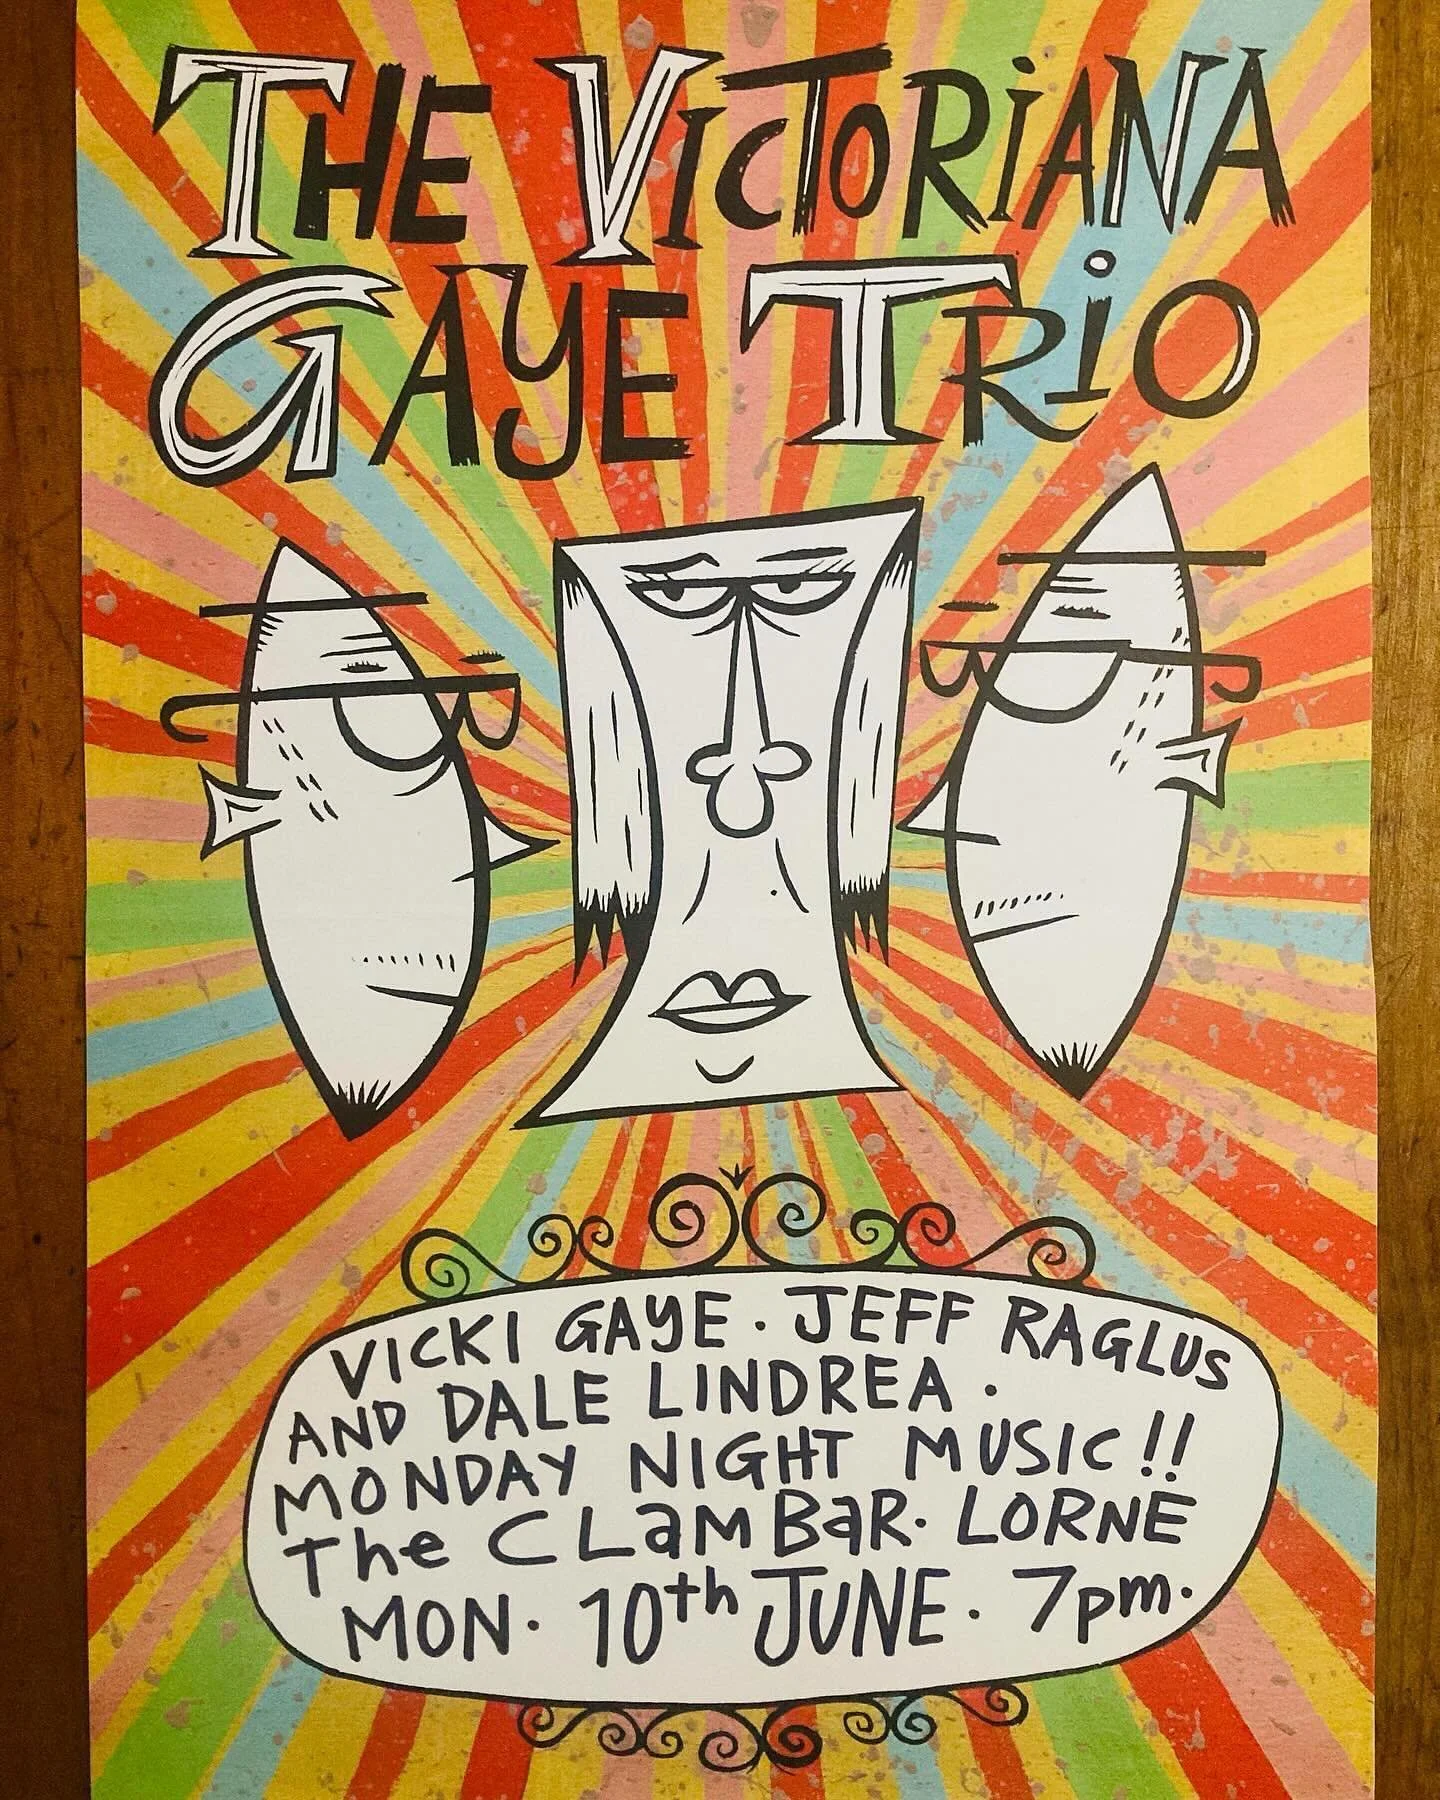 THE VICTORIANA
GAYE TRIO
VICKI GAYE. JEFF RAGLUS
AND DALE LINDREA.
MONDAY NIGHT MUSIC!!
The CLaM BaR. LORNE
MON. 10th JUNE. 7pm.